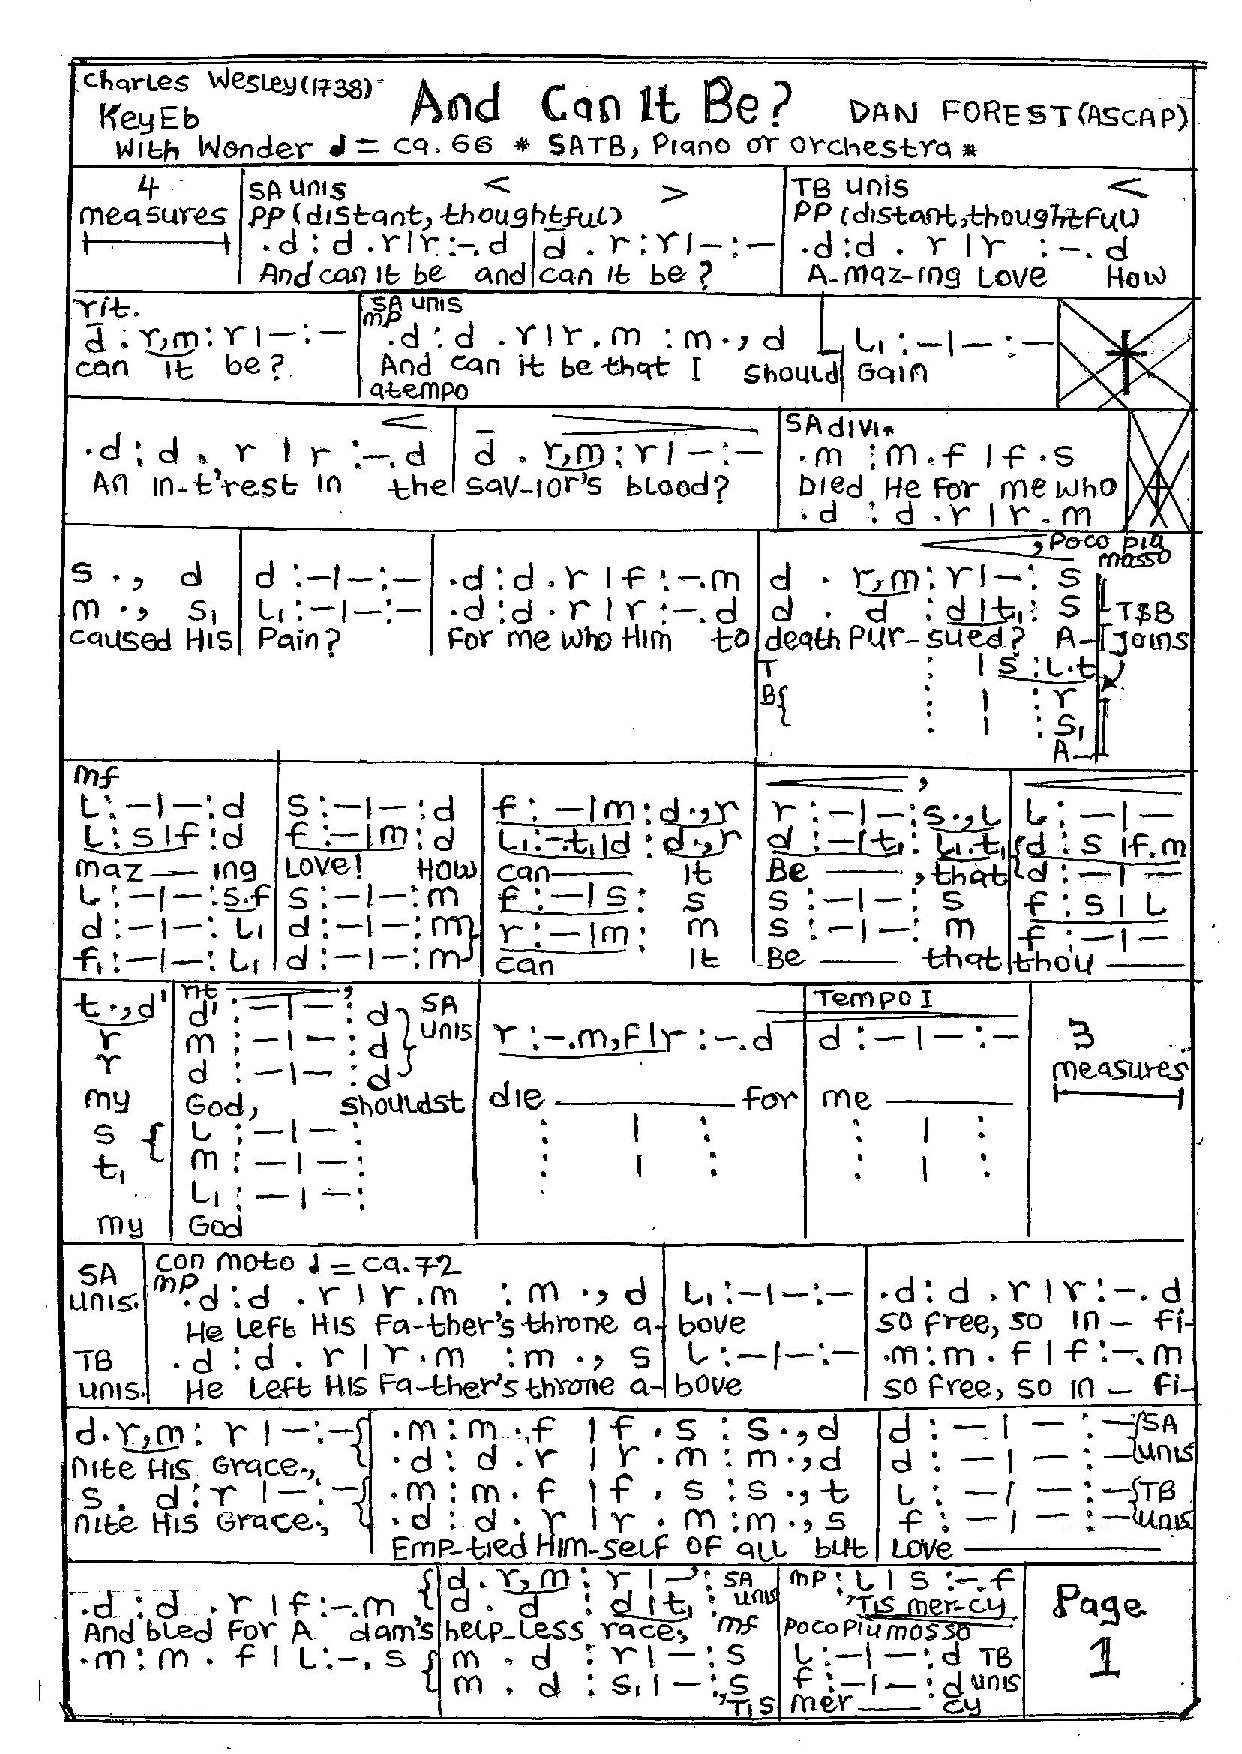 Charles Wesley (1738) And Can It Be? DAN FOREST (ASCAP)
Key Eb
With Wonder ♩ = ca. 66 * SATB, Piano or Orchestra *
4 SA unis < > TB unis <
measures PP (distant, thoughtful) PP (distant, thoughtful)
.d : d .r | r : -. d | d . r : r | - : - .d : d . r | r : -. d
And can it be and can it be? A-maz-ing Love How
rit. SA unis
mp
d . r,m : r | - : - .d : d .r | r . m : m . , d L₁ : - | - : -
can it be? And can it be that I should Gain
atempo
< SA divi.
.d : d . r | r : -. d d . r,m : r | - : - .m : m . f | f . s
An in-t'rest in the sav-ior's blood? Died He for me who
.d : d .r | r . m
, Poco piu mosso
s . , d d : - | - : - .d : d . r | f : -. m d . r,m : r | - : s
m . , s₁ L₁ : - | - : - .d : d . r | r : -. d d . d : d | t₁ : s T$B
caused His Pain? For me who Him to death Pur-sued? A- joins
T : | s : L . t
B { : | : r
: | : s₁
A-
mf < , <
L : - | - : d s : - | - : d f : - | m : d . , r r : - | - : s . , L L : - | -
L : s | f : d f : - | m : d L₁ : -. t₁ | d : d . , r d : - | t₁ : L₁ . t₁ d : s | f . m
maz — ing Love! How can — it Be — , that d : - | -
L : - | - : s . f s : - | - : m f : - | s : s s : - | - : s f : s | L
d : - | - : L₁ d : - | - : m r : - | m : m s : - | - : m f : - | -
f₁ : - | - : L₁ d : - | - : m can it Be — that thou —
rit , Tempo I
t . , d' d' : - | - : d SA 3
r m : - | - : d unis r : -. m,f | r : -. d d : - | - : - measures
r d : - | - : d
my God, shouldst die — for me —
s L : - | - : : | : : | :
t₁ m : - | - : : | : : | :
L₁ : - | - :
my God
con moto ♩ = ca. 72
SA mp
unis. .d : d . r | r . m : m . , d L₁ : - | - : - .d : d . r | r : -. d
He left His Fa-ther's throne a-bove so free, so in - fi-
TB .d : d . r | r . m : m . , s L : - | - : - .m : m . f | f : -. m
unis. He left His Fa-ther's throne a-bove so free, so in - fi-
d . r,m : r | - : - .m : m . f | f . s : s . , d d : - | - : - SA
nite His Grace., .d : d . r | r . m : m . , d d : - | - : - unis
s . d : r | - : - .m : m . f | f . s : s . , t L : - | - : - TB
nite His Grace., .d : d . r | r . m : m . , s f : - | - : - unis
Emp-tied Him-self of all but Love —
.d : d . r | f : -. m d . r,m : r | - : SA unis mp : L | s : -. f Page
d . d : d | t₁ : 'Tis mer-cy 1
And bled for A dam's help-less race, mf Poco Piu mosso
.m : m . f | L : -. s m . d : r | - : s L : - | - : d TB
m . d : s₁ | - : s f : - | - : d unis
'Tis mer — cy